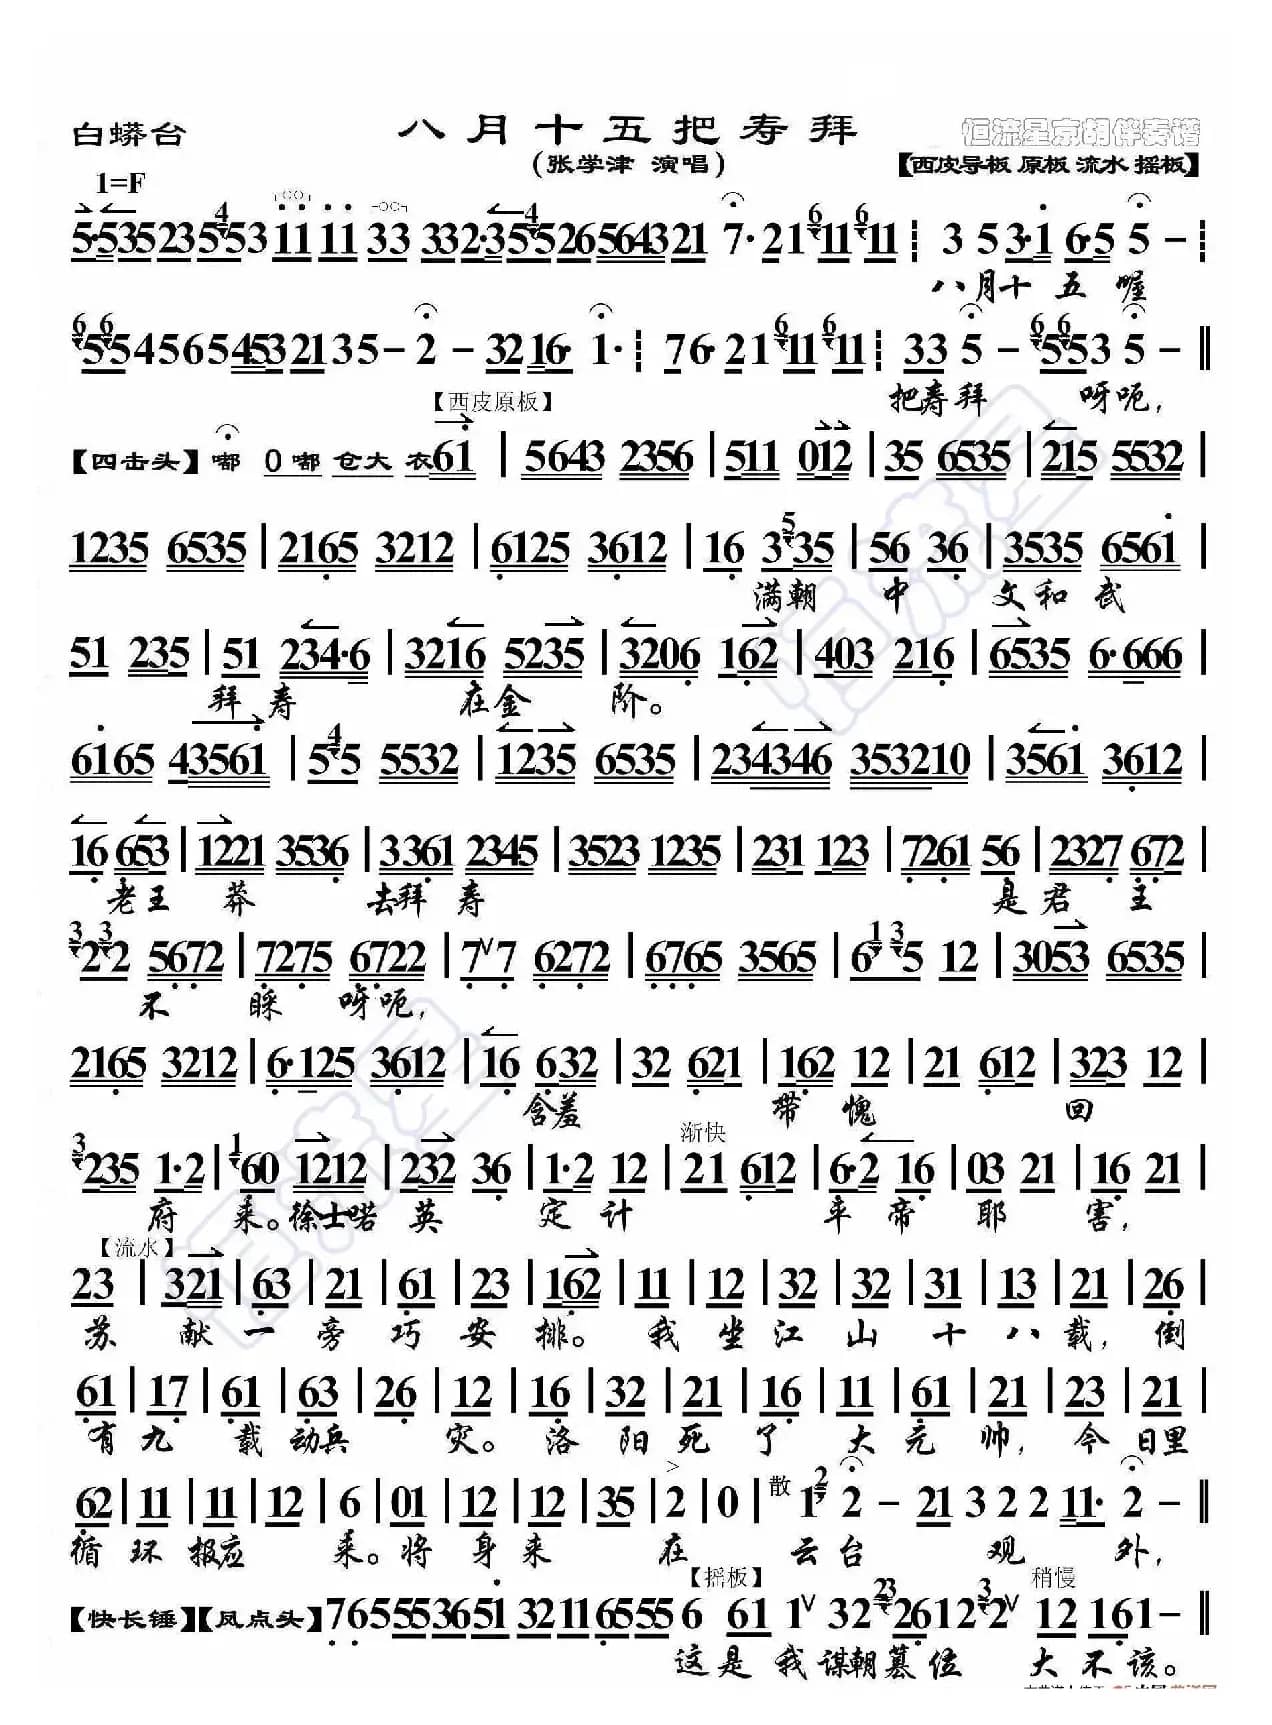 白蟒台 八月十五把寿拜 恒流星京胡伴奏谱
(张学津 演唱) 【西皮导板 原板 流水 摇板】
1=F
5·5352355 3 11 11 33 332·35526564321 7·21 11 11 ┊ 3 5 3·1 6·5 5 - ┊
八月十五喔
5545654532135-2- 3216· 1· ┊ 76·21 11 11 ┊ 335-553 5 - ‖
把寿拜 呀呃,
【西皮原板】
【四击头】嘟 0嘟 仓大 衣61 | 5643 2356 | 511 012 | 35 6535 | 215 5532 |
1235 6535 | 2165 3212 | 6125 3612 | 16 335 | 56 36 | 3535 6561 |
满朝 中 文和武
51 235 | 51 234·6 | 3216 5235 | 3206 162 | 403 216 | 6535 6·666 |
拜寿 在金 阶。
6165 43561 | 55 5532 | 1235 6535 | 234346 353210 | 3561 3612 |
16 653 | 1221 3536 | 3361 2345 | 3523 1235 | 231 123 | 7261 56 | 2327 672 |
老王 莽 去拜寿 是君 王
22 5672 | 7275 6722 | 7∨7 6272 | 6765 3565 | 65 12 | 3053 6535 |
不 睬 呀呃,
2165 3212 | 6·125 3612 | 16 632 | 32 621 | 162 12 | 21 612 | 323 12 |
含羞 带 愧 回
渐快
235 1·2 | 60 1212 | 232 36 | 1·2 12 | 21 612 | 6·2 16 | 03 21 | 16 21 |
府 来。徐士喏 英 定 计 平 帝 耶 害,
【流水】
23 | 321 | 63 | 21 | 61 | 23 | 162 | 11 | 12 | 32 | 32 | 31 | 13 | 21 | 26 |
苏 献 一 旁 巧 安 排。 我 坐 江 山 十 八 载, 倒
61 | 17 | 61 | 63 | 26 | 12 | 16 | 32 | 21 | 16 | 11 | 61 | 21 | 23 | 21 |
有 九 载 动兵 灾。 洛 阳 死 了 大 元 帅, 今 日里
62 | 11 | 11 | 12 | 6 | 01 | 12 | 12 | 35 | 2 | 0 | 散 1 2 - 21 3 2 2 11· 2 - ‖
循 环 报应 来。将 身 来 在 云台 观 外,
【摇板】 稍慢
【快长锤】【凤点头】765553651 3211655 5 6 61 1∨ 32 261 2 2∨ 12 161- ‖
这是 我 谋朝篡位 大 不 该。